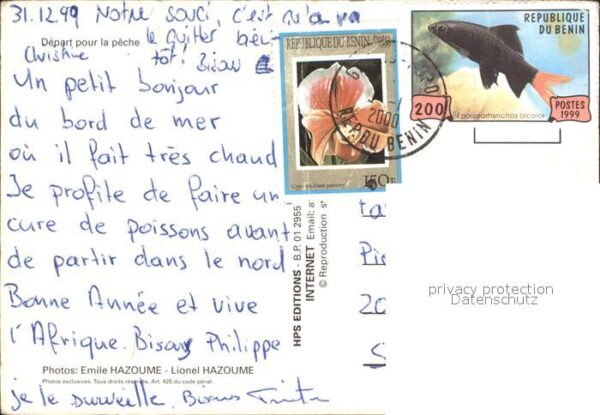 31.12.99 Notre souci, c'est qu'on va
le quitter
Christine tôt! Bisous
Départ pour la pêche
Un petit bonjour
du bord de mer
où il fait très chaud
Je profite de faire un
cure de poissons avant
de partir dans le nord
Bonne Année et vive
l'Afrique. Bisous Philippe
Photos: Emile HAZOUME - Lionel HAZOUME
Photos exclusives. Tous droits réservés. Art. 425 du code pénal.
je le surveille. Bisous
HPS EDITIONS - B.P. 01 2955
INTERNET Email: a
© Reproduction s
REPUBLIQUE DU BENIN Postes
150F
2000
BENIN
REPUBLIQUE
DU BENIN
200
Epalzeorhynchos bicolor
POSTES
1999
ta
Pie
20
S
privacy protection
Datenschutz